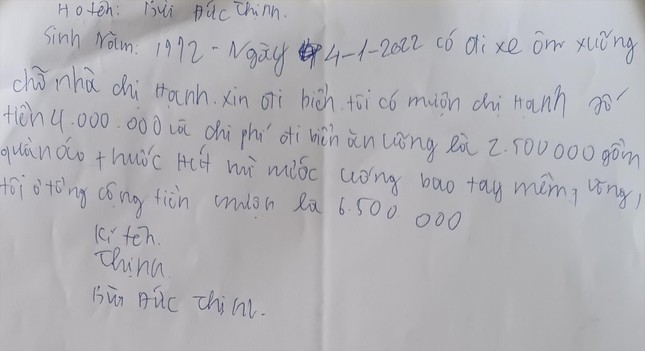 Họ tên: Bùi Đức Thịnh.
Sinh Năm: 1972 - Ngày 4-1-2022 có đi xe ôm xuống
chỗ nhà chị Hạnh. xin đi biển. tôi có mượn chị Hạnh số
tiền 4.000.000 và chi phí đi biển ăn uống là 2.500 000 gồm
quần áo thuốc Hút mì nước uống bao tay mềm, võng,
tôi ở tổng cộng tiền mượn là 6.500 000
Kí tên.
Thịnh
Bùi Đức Thịnh.